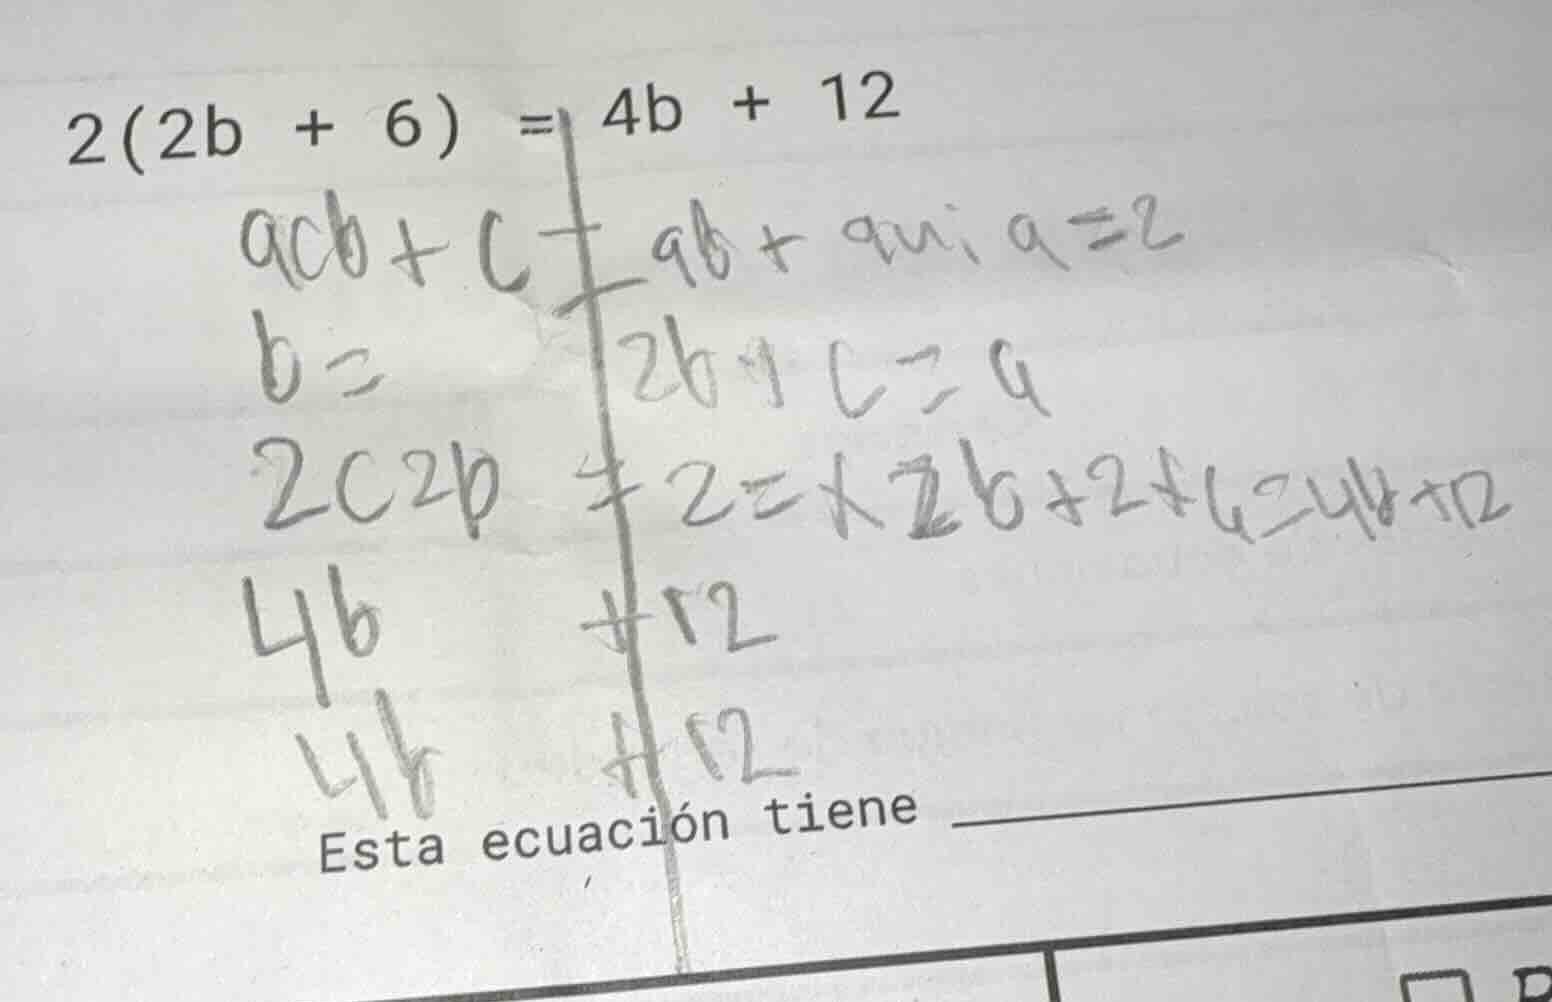 2(2b + 6) = 4b + 12
acb + c = ab + a =2
b = 2b + c = a
2c2b + 2 = x 2b + 2 x 6 = 4b + 12
4b + 12
4b + 12
Esta ecuación tiene